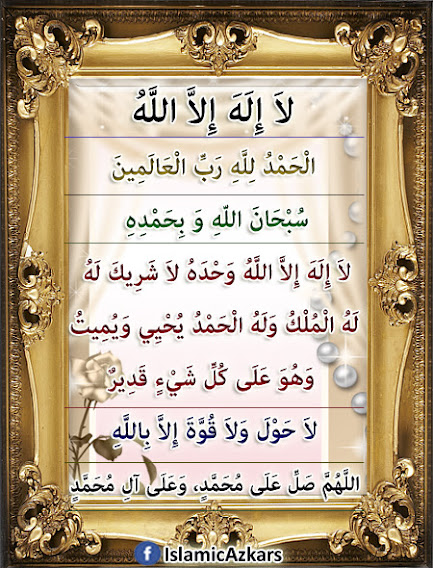 لاَ إِلَهَ إِلاَّ اللَّهُ
الْحَمْدُ لِلَّهِ رَبِّ الْعَالَمِينَ
سُبْحَانَ اللّهِ وَ بِحَمْدِهِ
لاَ إِلَهَ إِلاَّ اللَّهُ وَحْدَهُ لاَ شَرِيكَ لَهُ
لَهُ الْمُلْكُ وَلَهُ الْحَمْدُ يُحْيِي وَيُمِيتُ
وَهُوَ عَلَى كُلِّ شَيْءٍ قَدِيرٌ
لاَ حَوْلَ وَلاَ قُوَّةَ إِلاَّ بِاللَّهِ
اللَّهُمَّ صَلِّ عَلَى مُحَمَّدٍ، وَعَلَى آلِ مُحَمَّدٍ
f IslamicAzkars